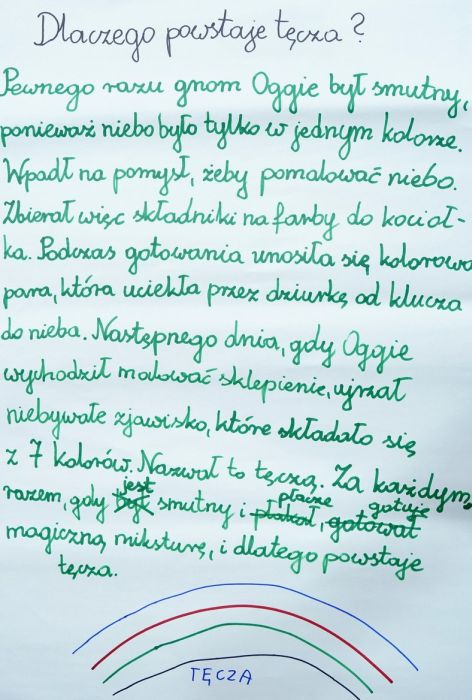 Dlaczego powstaje tęcza?
Pewnego razu gnom Oggie był smutny,
ponieważ niebo było tylko w jednym kolorze.
Wpadł na pomysł, żeby pomalować niebo.
Zbierał więc składniki na farby do kocioł-
ka. Podczas gotowania unosiła się kolorowa
para, która uciekła przez dziurkę od klucza
do nieba. Następnego dnia, gdy Oggie
wychodził malować sklepienie, ujrzał
niebywałe zjawisko, które składało się
z 7 kolorów. Nazwał to tęczą. Za każdym
jest płacze gotuje
razem, gdy był smutny i płakał, gotował
magiczną miksturę, i dlatego powstaje
tęcza.
TĘCZA